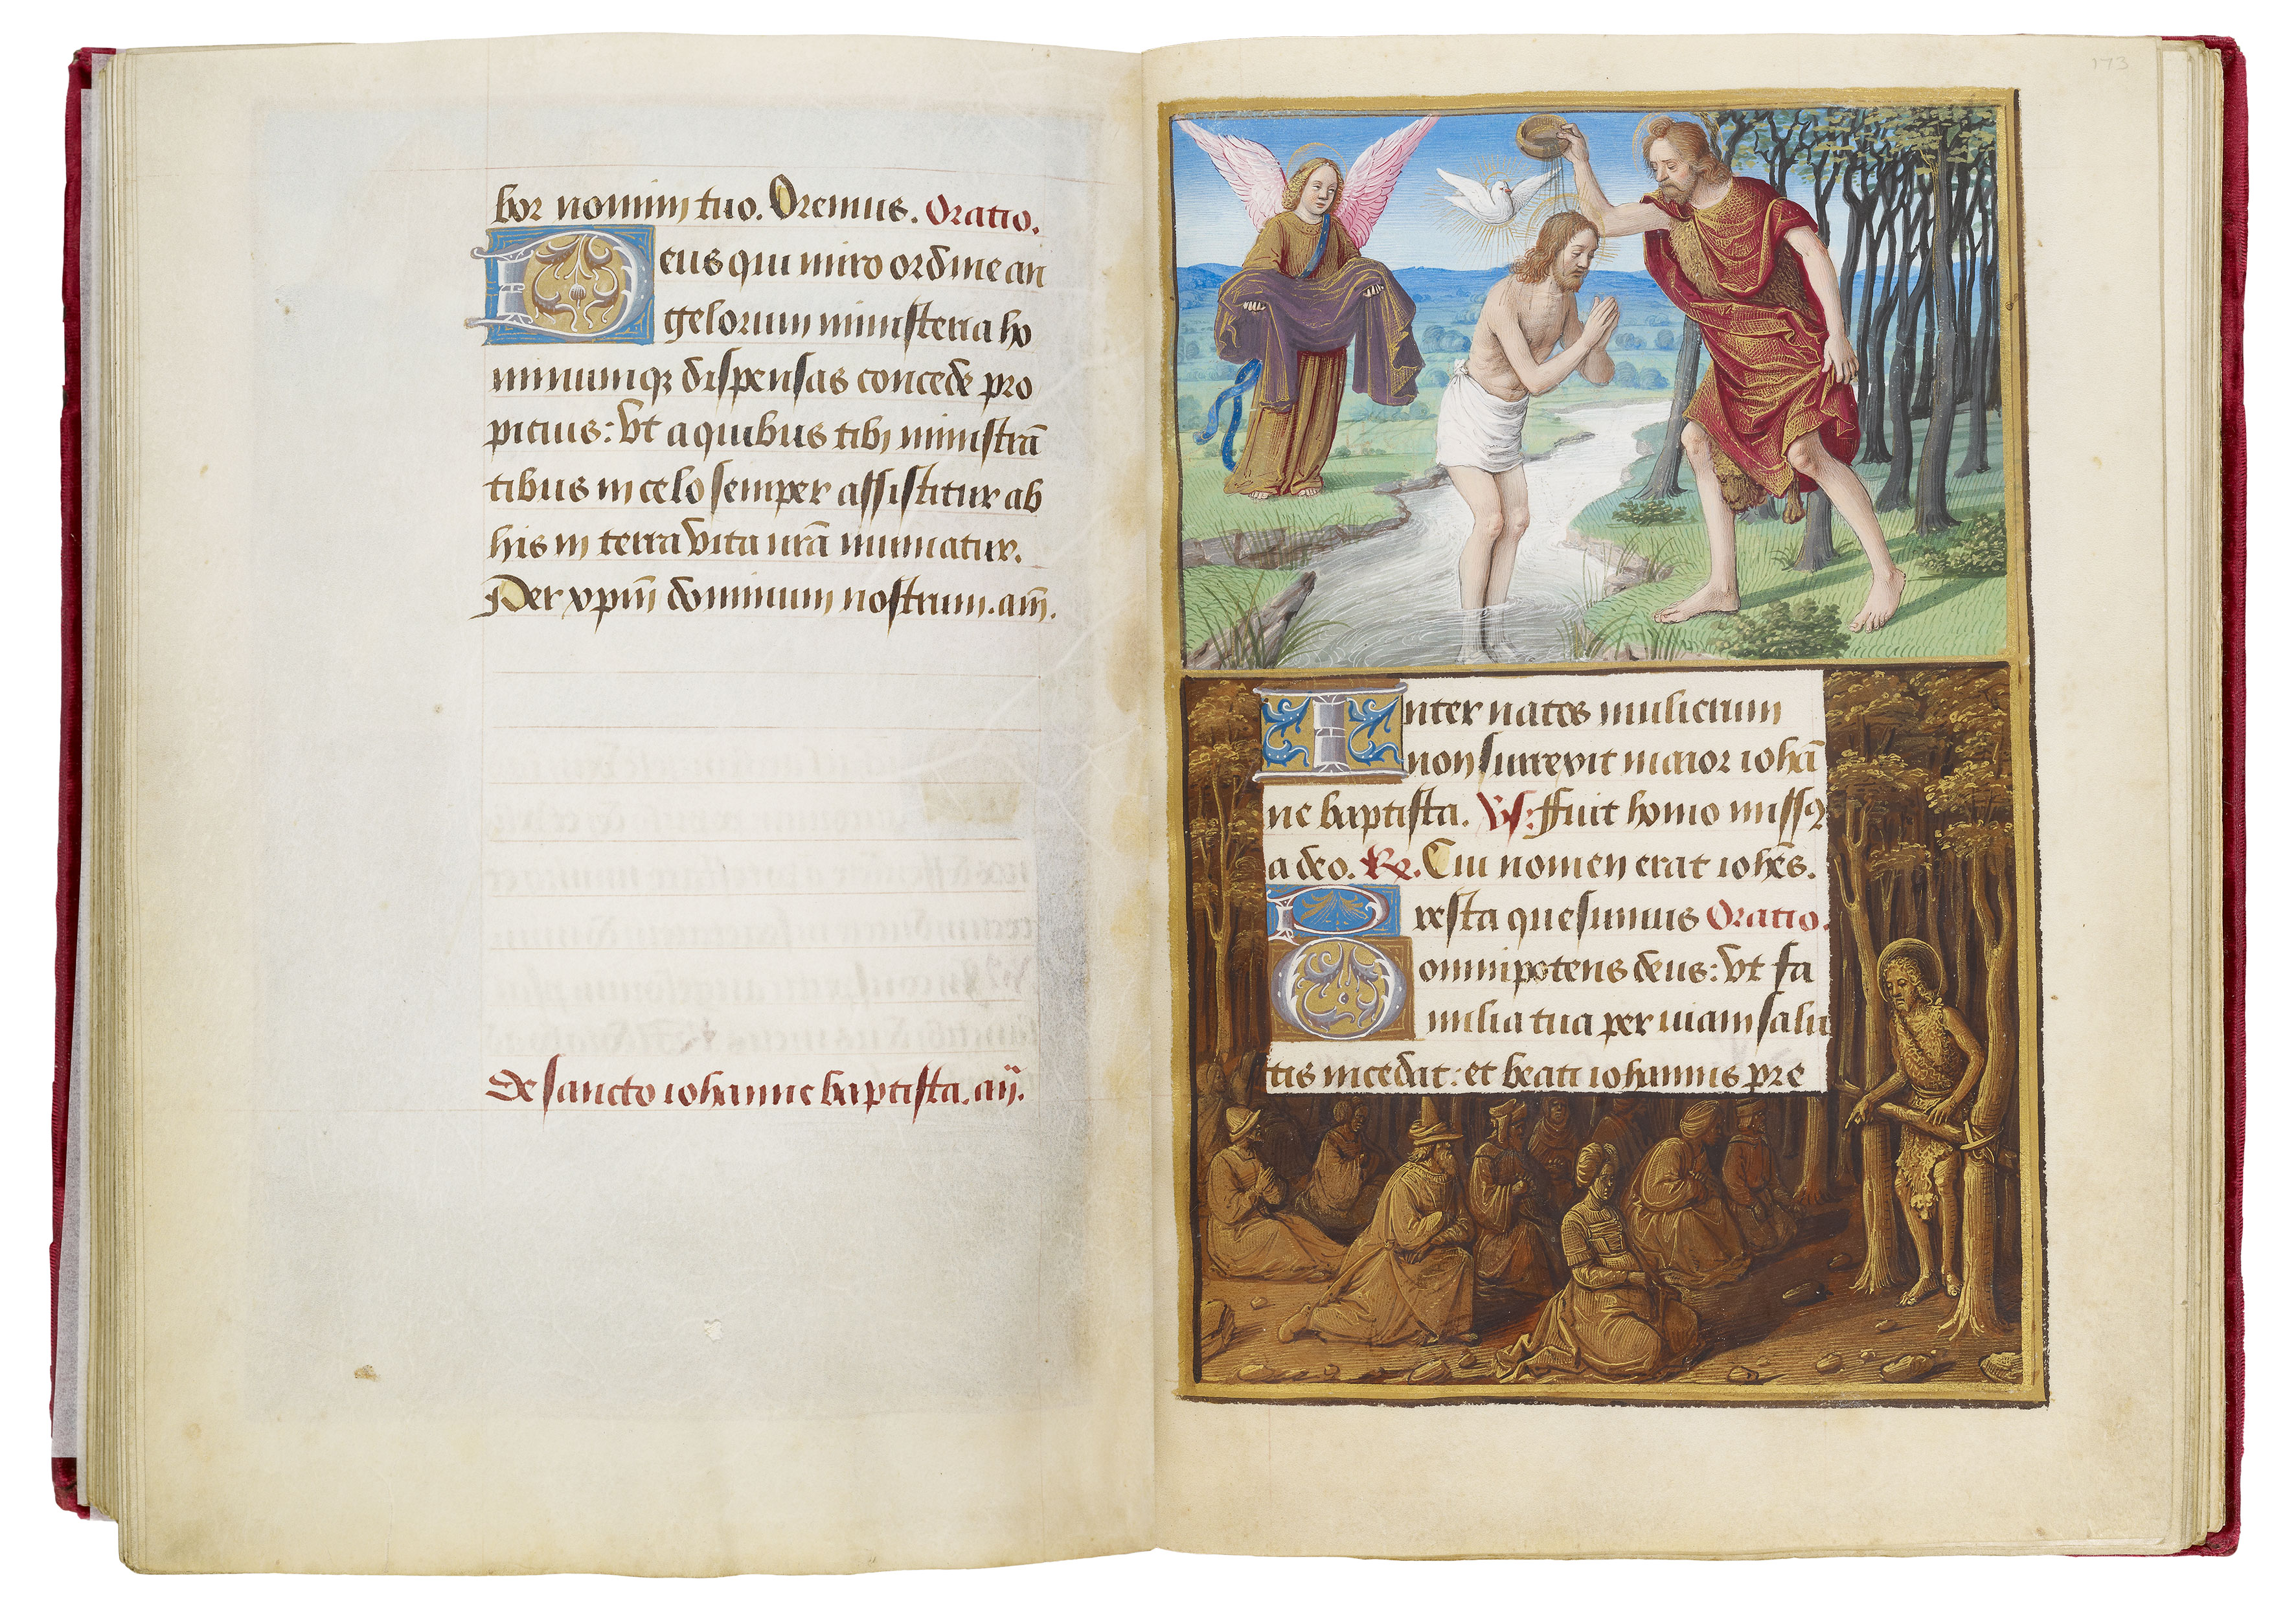 bor nomini tuo. Oremus. Oratio.
Deus qui miro ordine an
gelorum ministeria ho
minumqȝ dispensas concede pro
picius: Vt a quibus tibi ministrā
tibus in celo semper assistitur ab
his in terra vita nr̄a muniatur.
Per xp̄m dominum nostrum. am̄.
De sancto iohanne baptista. an̄.
173
Inter natos mulierum
non surrexit maior iohā
ne baptista. Vs: ffuit homo missꝯ
a deo. Rx. Cui nomen erat ioh̄es.
Presta quesumus Oratio.
omnipotens deus: Vt fa
milia tua per uiam salu
tis incedat: et beati iohannis pre